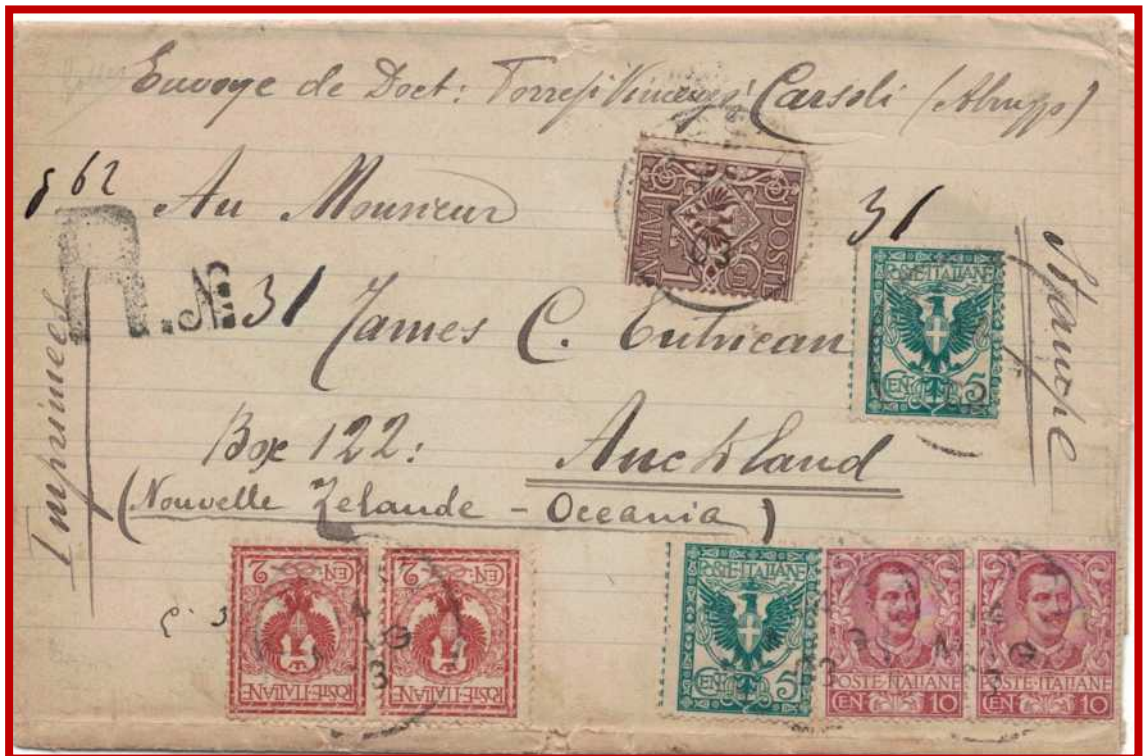 Envoye de Doct: Carsoli
562 Au Monsieur 31
R. N. 31 James C.
Box 122: Auckland
(Nouvelle Zelande - Oceania)
Imprimees
POSTE ITALIANE
1 CEN
POSTE·ITALIANE
CEN 5
POSTE·ITALIANE
CEN 2
POSTE·ITALIANE
CEN 2
POSTE·ITALIANE
CEN 5
POSTE·ITALIANE
CEN 10
POSTE·ITALIANE
CEN 10